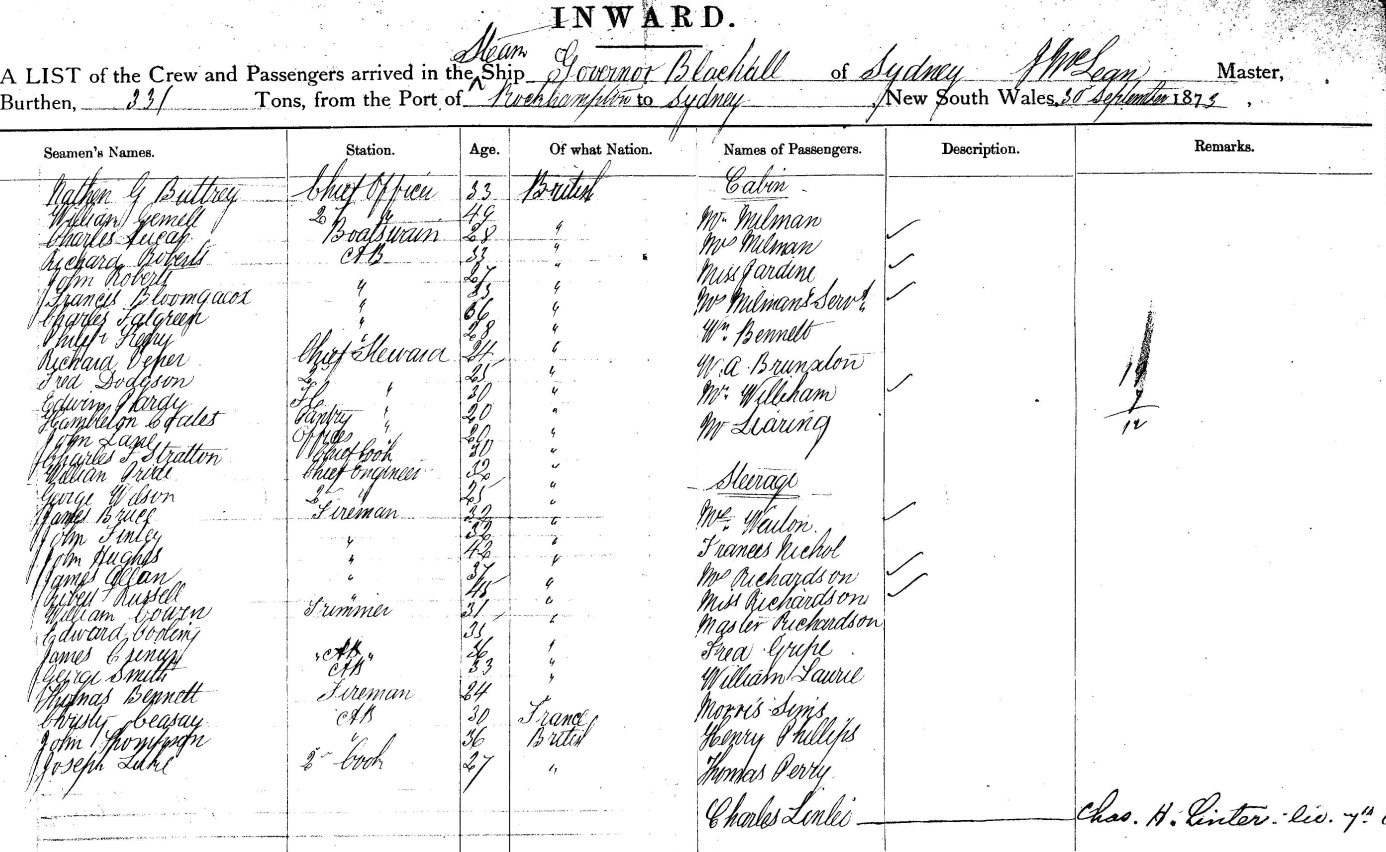 INWARD.
Steam
A LIST of the Crew and Passengers arrived in the Ship Governor Blackall of Sydney J McLean Master,
Burthen, 331 Tons, from the Port of Rockhampton to Sydney, New South Wales, 30 September 1873.
Seamen's Names. Station. Age. Of what Nation. Names of Passengers. Description. Remarks.
Nathen G Buttrey Chief Officer 33 British Cabin
William Gemell 2 " 49 Mr Milman
Charles Lucas Boatswain 28 " Mrs Milman
Richard Roberts AB 33 " Miss Jardine
John Roberts 27 "
Francis " " Mrs Milman's Servt
Charles Falgreen " 36 "
Philip " 28 " Wm Bennett
Richard Chief Steward 24 " W. A. Brunxton
Fred Dodgson 2 25 " Mr
Edwin Hardy " 30 "
Hambleton Coates Pantry " 20 " Mr
12
John Lane " 20 "
Charles F Stratton Chief Cook 30 "
William Chief Engineer 32 " Steerage
George Wilson 2 " 25 "
James Bruce Fireman 32 " Mrs
John Finley " 32 " Frances Nichol
John Hughes " 42 "
James Allan " 37 " Mrs Richardson
Russell 45 " Miss Richardson
William Cowen Trimmer 31 " Master Richardson
Edward 35
James "AB" 36 " Fred Gripe
George Smith AB 33 " William Laurie
Thomas Bennett Fireman 24 "
Christy Ceasay AB 30 France Morris Sims
John Thompson " 36 British Henry Phillips
Joseph Luke 2nd Cook 27 " Thomas Perry
Charles Linlei Chas. H. Linter